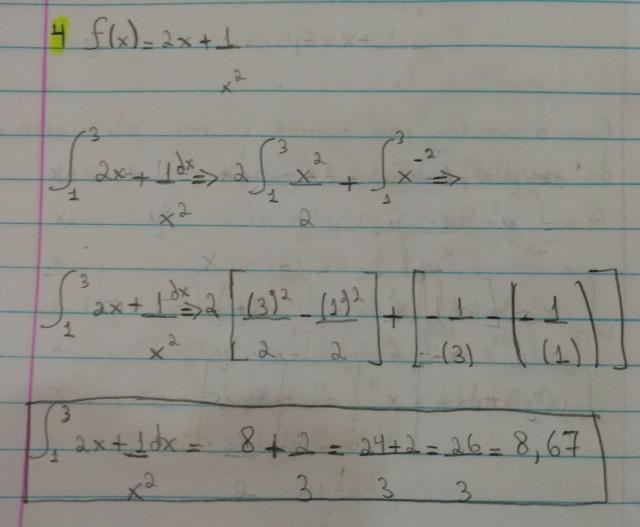 4 f(x) = 2x + 1/x²
∫₁³ 2x + 1/x² dx ⇒ 2 ∫₁³ x²/2 + ∫₁³ x⁻² ⇒
∫₁³ 2x + 1/x² dx ⇒ 2 [(3)²/2 - (1)²/2] + [- 1/-(3) - (- 1/(1))]
∫₁³ 2x + 1/x² dx = 8 + 2/3 = 24+2/3 = 26/3 = 8,67